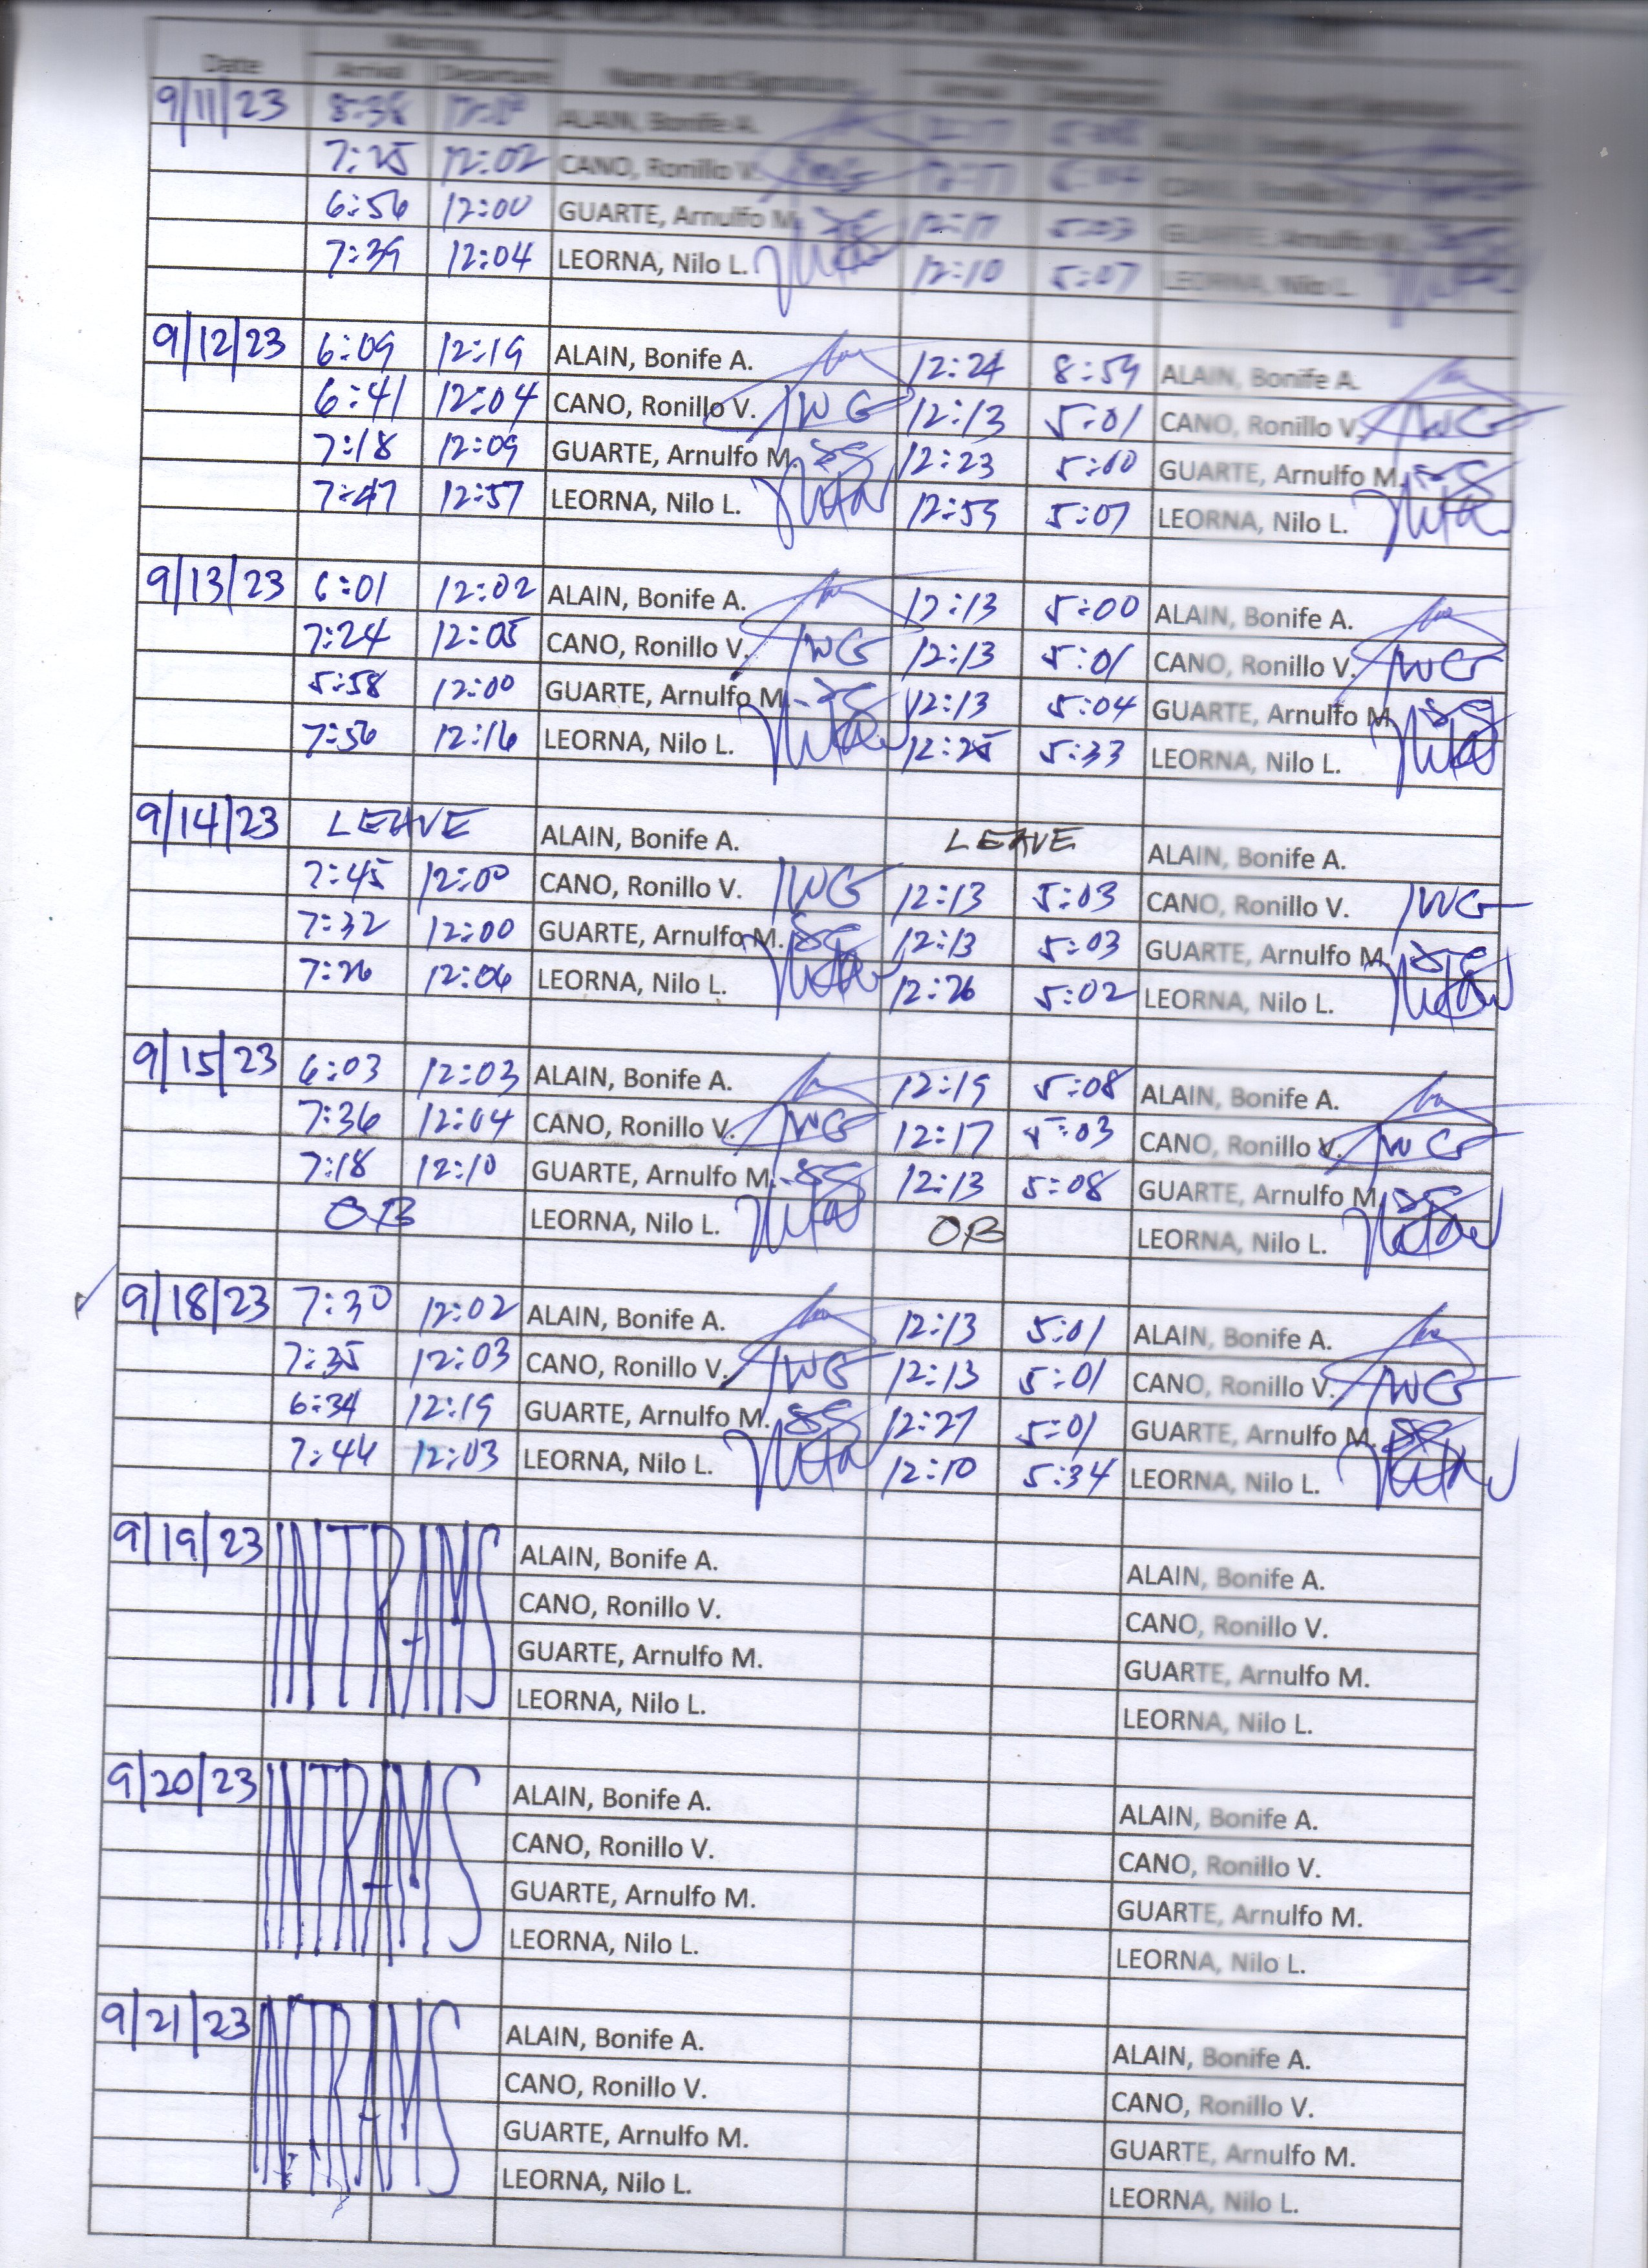 Morning
Date Arrival Departure Name and Signature Arrival
9/11/23 8:38 ALAIN, Bonife A.
7:25 12:02 CANO, Ronillo V. JWG 12:17
6:56 12:00 GUARTE, Arnulfo M. 12:17 5:03 GUARTE, Arnulfo M.
7:39 12:04 LEORNA, Nilo L. 12:10 5:07 LEORNA, Nilo L.
9/12/23 6:09 12:19 ALAIN, Bonife A. 12:24 8:59 ALAIN, Bonife A.
6:41 12:04 CANO, Ronillo V. JWG 12:13 5:01 CANO, Ronillo V. JWG
7:18 12:09 GUARTE, Arnulfo M. 12:23 5:00 GUARTE, Arnulfo M.
7:47 12:57 LEORNA, Nilo L. 12:59 5:07 LEORNA, Nilo L.
9/13/23 6:01 12:02 ALAIN, Bonife A. 12:13 5:00 ALAIN, Bonife A.
7:24 12:05 CANO, Ronillo V. JWG 12:13 5:01 CANO, Ronillo V. JWG
5:58 12:00 GUARTE, Arnulfo M. 12:13 5:04 GUARTE, Arnulfo M.
7:56 12:16 LEORNA, Nilo L. 12:25 5:33 LEORNA, Nilo L.
9/14/23 LEAVE ALAIN, Bonife A. LEAVE ALAIN, Bonife A.
7:45 12:00 CANO, Ronillo V. JWG 12:13 5:03 CANO, Ronillo V. JWG
7:32 12:00 GUARTE, Arnulfo M. 12:13 5:03 GUARTE, Arnulfo M.
7:26 12:06 LEORNA, Nilo L. 12:26 5:02 LEORNA, Nilo L.
9/15/23 6:03 12:03 ALAIN, Bonife A. 12:19 5:08 ALAIN, Bonife A.
7:36 12:04 CANO, Ronillo V. JWG 12:17 5:03 CANO, Ronillo V. JWG
7:18 12:10 GUARTE, Arnulfo M. 12:13 5:08 GUARTE, Arnulfo M.
OB LEORNA, Nilo L. OB LEORNA, Nilo L.
9/18/23 7:30 12:02 ALAIN, Bonife A. 12:13 5:01 ALAIN, Bonife A.
7:35 12:03 CANO, Ronillo V. JWG 12:13 5:01 CANO, Ronillo V. JWG
6:34 12:19 GUARTE, Arnulfo M. 12:27 5:01 GUARTE, Arnulfo M.
7:44 12:03 LEORNA, Nilo L. 12:10 5:34 LEORNA, Nilo L.
9/19/23 INTRAMS ALAIN, Bonife A. ALAIN, Bonife A.
CANO, Ronillo V. CANO, Ronillo V.
GUARTE, Arnulfo M. GUARTE, Arnulfo M.
LEORNA, Nilo L. LEORNA, Nilo L.
9/20/23 INTRAMS ALAIN, Bonife A. ALAIN, Bonife A.
CANO, Ronillo V. CANO, Ronillo V.
GUARTE, Arnulfo M. GUARTE, Arnulfo M.
LEORNA, Nilo L. LEORNA, Nilo L.
9/21/23 INTRAMS ALAIN, Bonife A. ALAIN, Bonife A.
CANO, Ronillo V. CANO, Ronillo V.
GUARTE, Arnulfo M. GUARTE, Arnulfo M.
LEORNA, Nilo L. LEORNA, Nilo L.